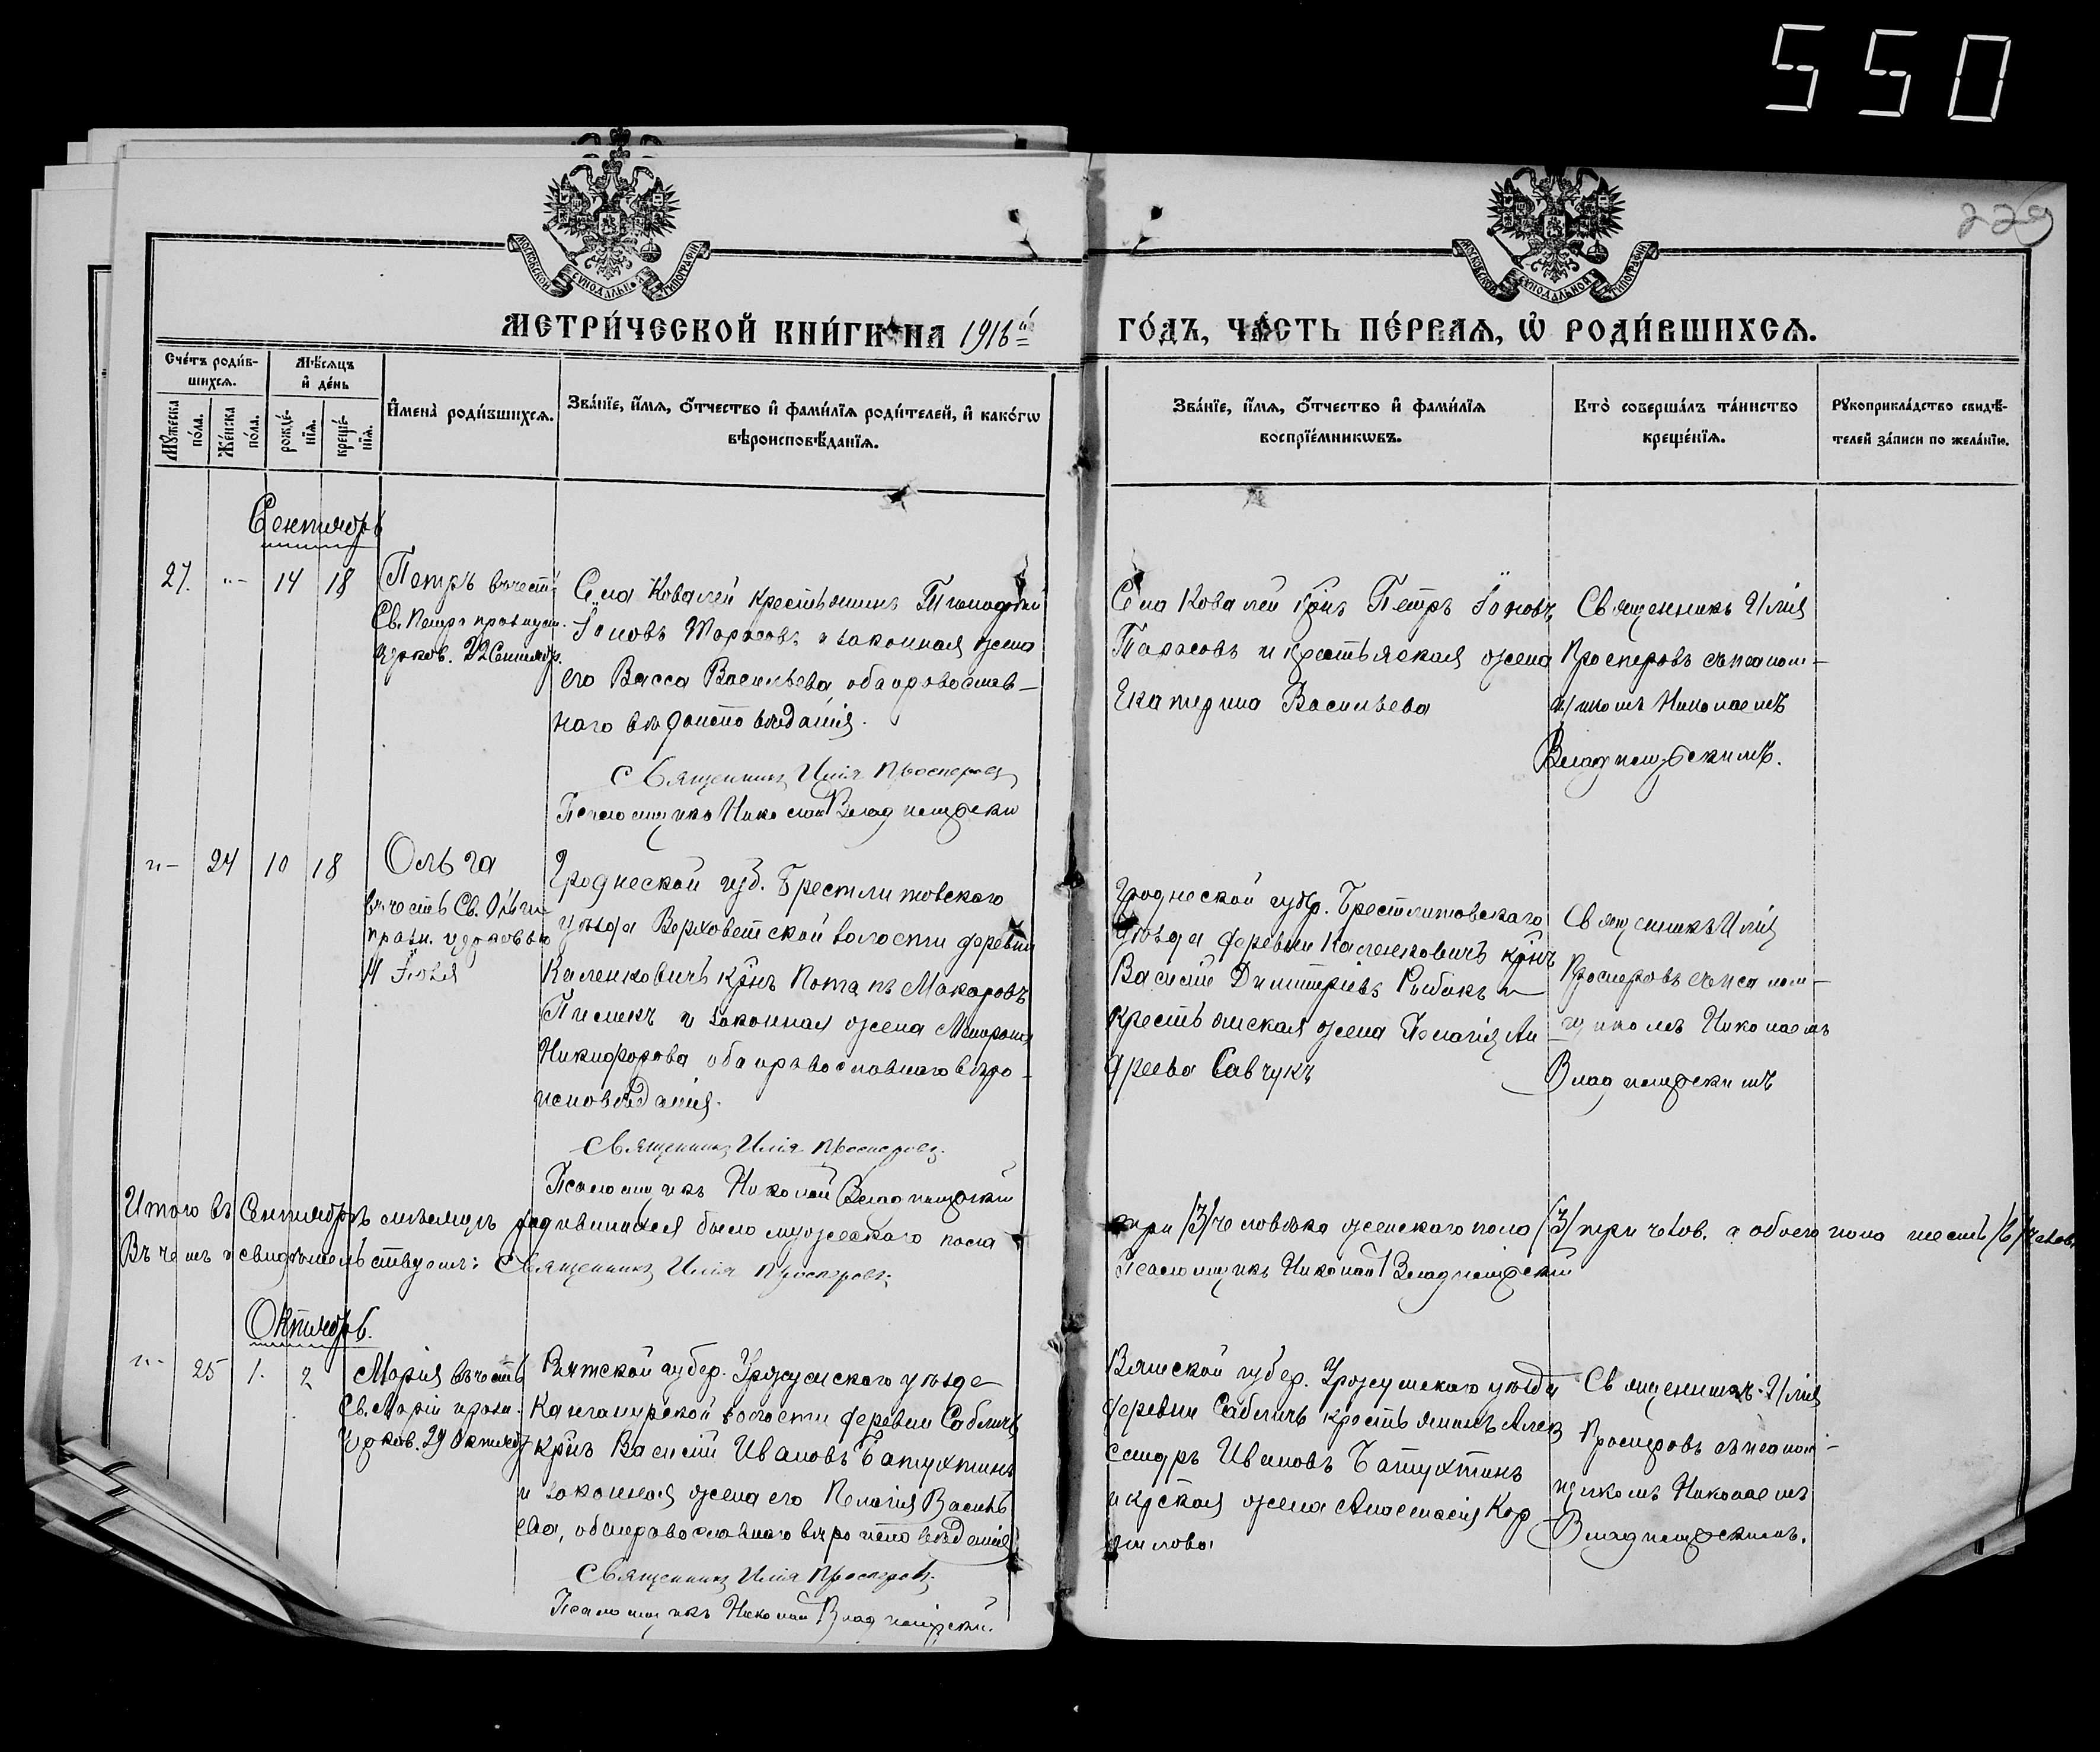 550
229
МОСКОВСКОЙ СѴНОДАЛЬНОЙ ТИПОГРАФІИ
МОСКОВСКОЙ СѴНОДАЛЬНОЙ ТИПОГРАФІИ
МЕТРИ́ЧЕСКОЙ КНИ́ГИ НА 1916й ГО́ДЪ, ЧА́СТЬ ПЕ́РВАѦ, Ѡ РОДИ́ВШИХСѦ.
Сче́тъ роди́в-
шихсѧ.
Мѣ́сѧцъ
и҆ де́нь
Мꙋжеска
по́ла.
Же́нска
по́ла.
рожде́-
нїѧ.
креще́-
нїѧ.
И҆мена̀ роди́вшихсѧ.
Зва́нїе, и҆́мѧ, ѻ҆́тчество и҆ фами́лїѧ роди́телей, и҆ како́гѡ
вѣроисповѣ́данїѧ.
Зва́нїе, и҆́мѧ, ѻ҆́тчество и҆ фами́лїѧ
воспрїе́мникѡвъ.
Кто̀ соверша́лъ та́инство
креще́нїѧ.
Рꙋкоприкла́дство свидѣ́-
телей за́писи по жела́нїю.
Сентябрь
27. "- 14 18
Петръ въ честь
Св. Петра празнуем.
церков. 22 Сентябр.
Села Ковалей крестьянинъ
Іоновъ Тарасовъ и законная жена
его Васса Васильева, оба православ-
наго вѣроисповѣданія.
Священникъ Илія Просперовъ
Псаломщикъ Николай
Села Ковалей крнъ Петръ Іоновъ
Тарасовъ и крестьянская жена
Екатерина Васильева
Священникъ Илія
Просперовъ съ псалом-
щикомъ Николаемъ
"- 24 10 18
Ольга
въ честь Св. Ольги
празн. церковью
11 Іюля
Гроднеской губ. Брестлитовскаго
уѣзда Верховетской волости деревни
Каленковичъ крнъ Потапъ Макаровъ
и законная жена
Никифорова оба православнаго вѣро-
исповѣданія.
Священникъ Илія Просперовъ
Псаломщикъ Николай
Гроднеской губр. Брестлитовскаго
уѣзда деревни Каленковичъ крнъ
Василій Димитріевъ Рыбакъ и
крестьянская жена Пелагія Ан-
дреева Савчукъ
Священникъ Илія
Просперовъ съ псалом-
щикомъ Николаемъ
Итого въ Сентябрѣ мѣсяцѣ родившихся было мужескаго пола три /3/ человѣка женскаго пола /3/ три челов. а обоего пола шесть /6/ челов.
Въ чемъ и свидѣтельствуемъ: Священникъ Илія Просперовъ Псаломщикъ Николай
Октябрь.
"- 25 1. 2
Марія въ честь
Св. Маріи празн.
церков. 29 Октября
Вятской губер. Уржумскаго уѣзда
волости деревни
крнъ Василій Ивановъ Батухтинъ
и законная жена его Пелагія Василь-
ева, оба православнаго вѣроисповѣданія
Священникъ Илія Просперовъ
Псаломщикъ Николай
Вятской губер. Уржумскаго уѣзда
деревни крестьянинъ Алек
сандръ Ивановъ Батухтинъ
и крская жена Анастасія Кор
нилова
Священникъ Илія
Просперовъ съ псалом-
щикомъ Николаемъ